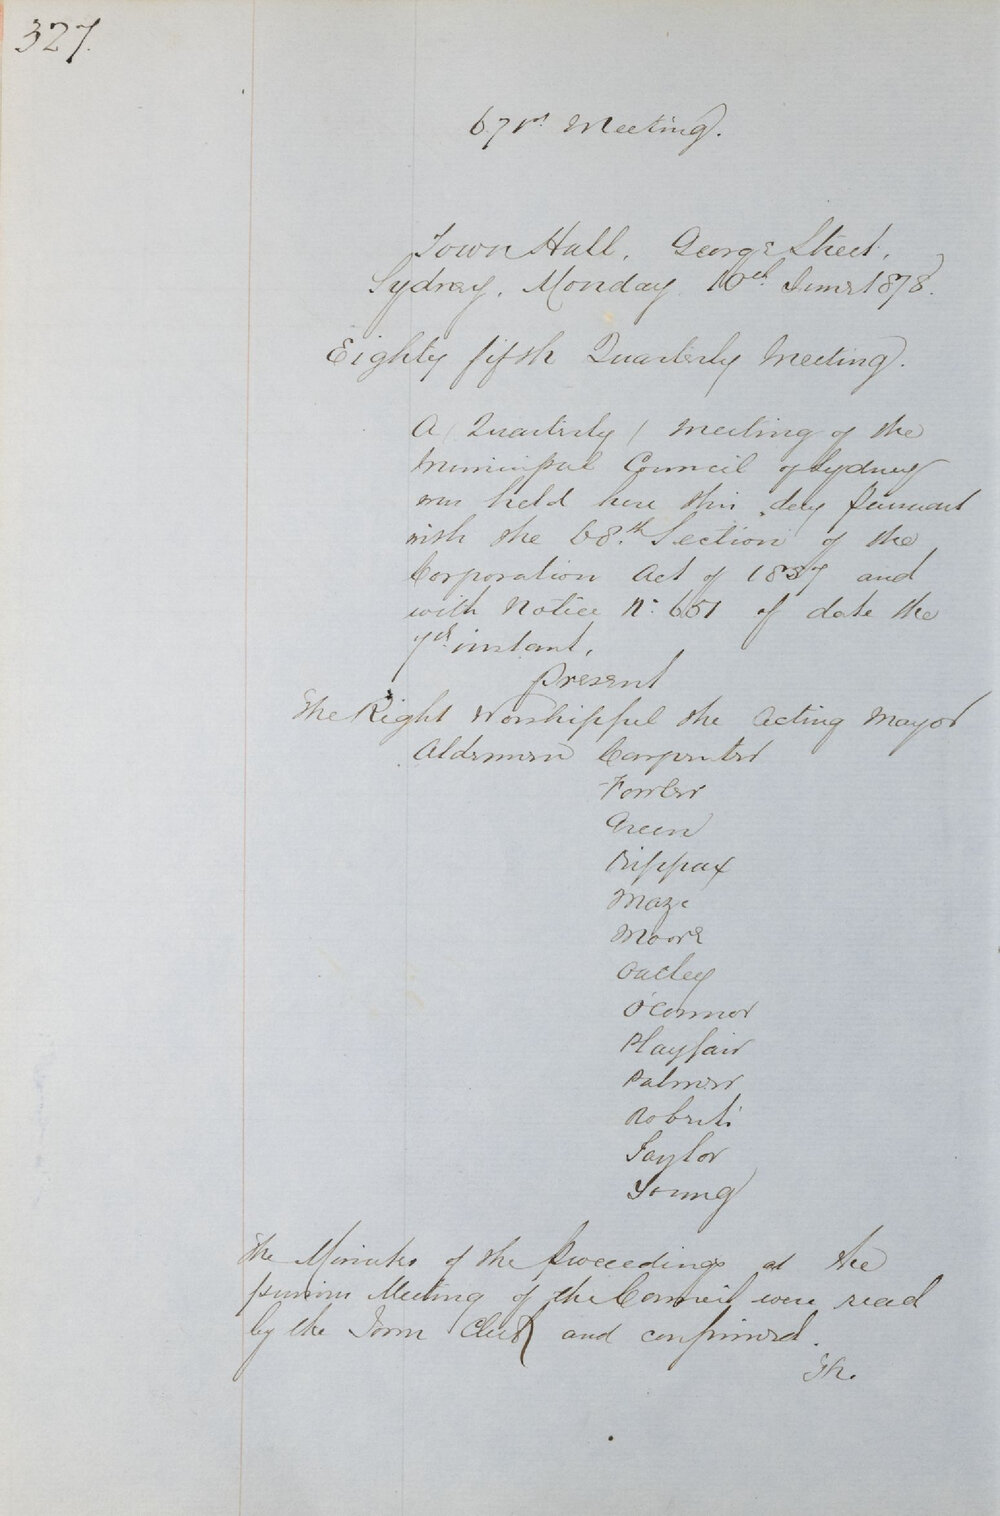 327.
671st Meeting.
Town Hall, George Street,
Sydney, Monday 10th June 1878.
Eighty fifth Quarterly Meeting.
A (Quarterly) Meeting of the
Municipal Council of Sydney
was held here this day pursuant
with the 68th Section of the
Corporation Act of 1857 and
with Notice No. 651 of date the
7th instant,
Present
The Right Worshipful the Acting Mayor
Aldermen Carpenter
Fowler
Green
Hippax
Maze
Moore
Oatley
O'Connor
Playfair
Palmer
Roberts
Taylor
Young
The Minutes of the Proceedings at the
previous Meeting of the Council were read
by the Town Clerk and confirmed.